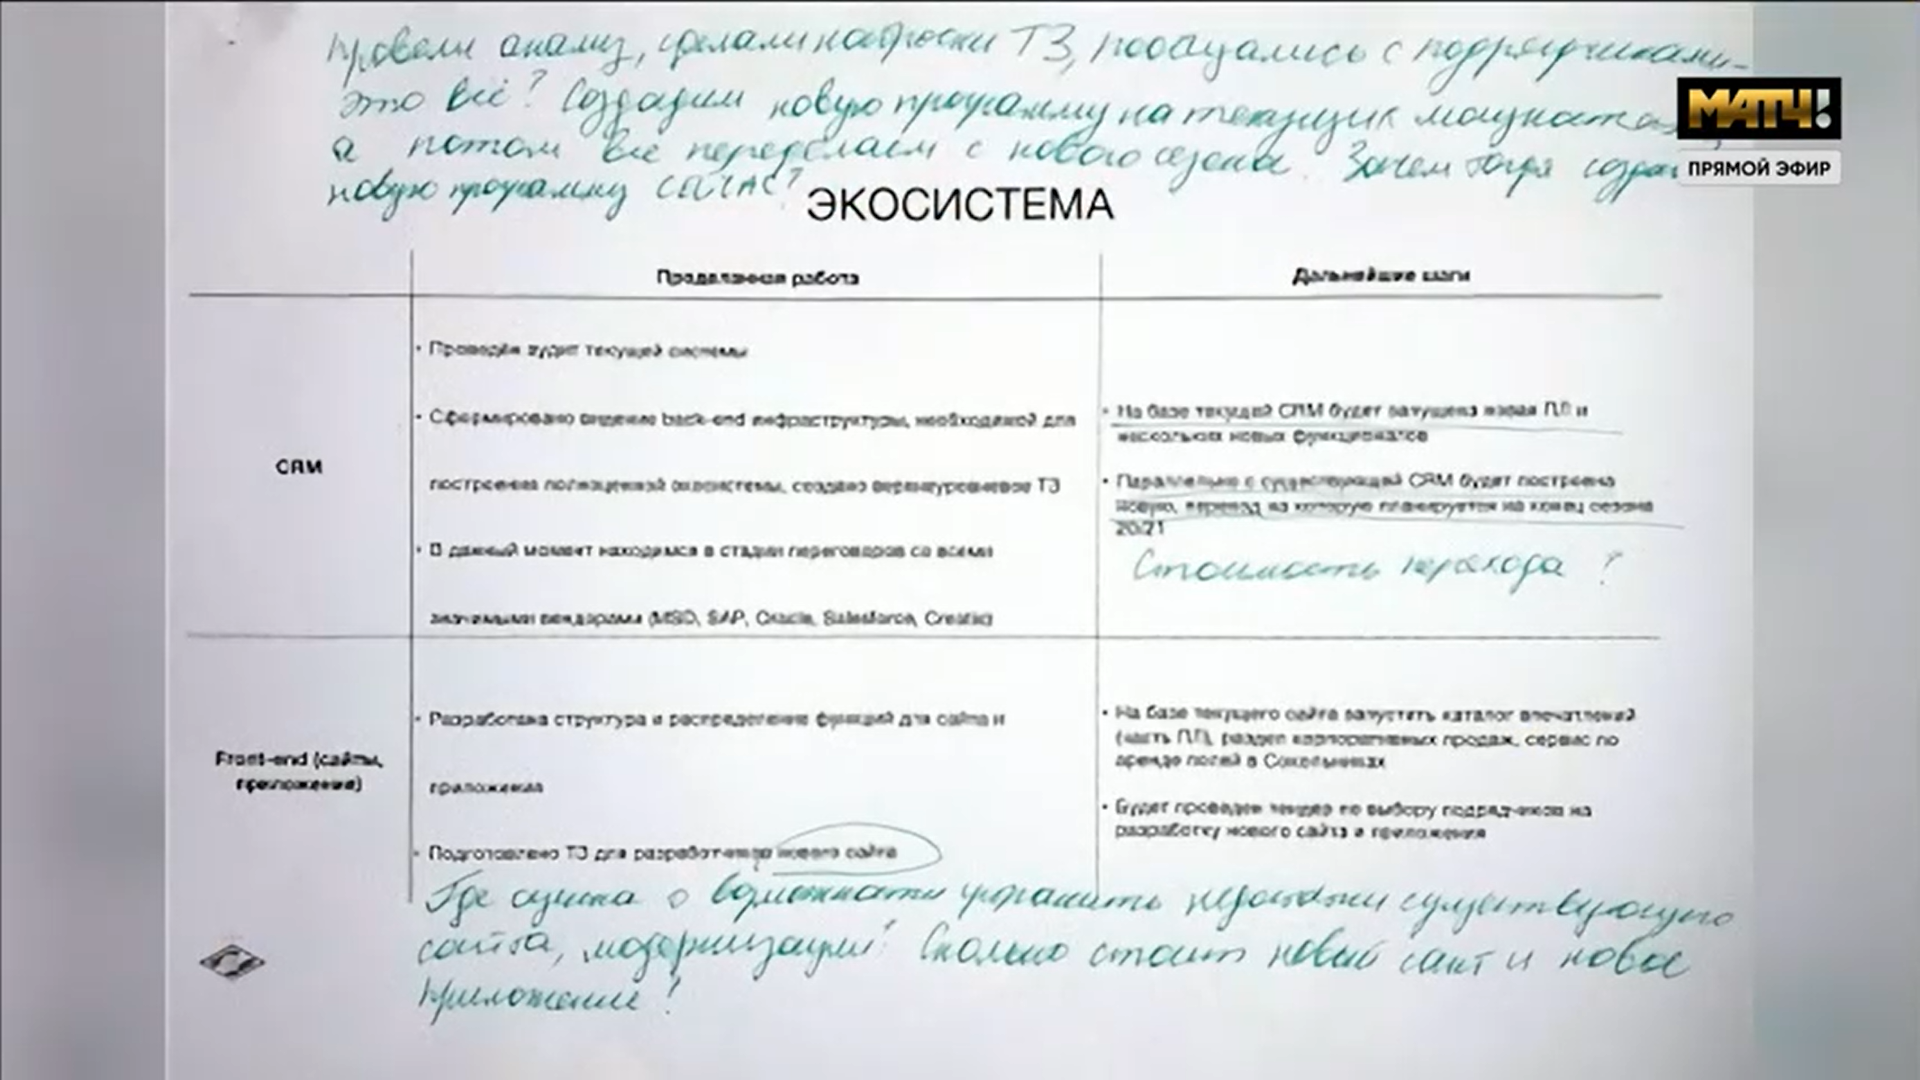 Провели анализ, сделали наброски ТЗ, пообщались с подрядчиками -
это всё? Создадим новую программу на текущих
а потом всё переделаем с нового сезона. Зачем тогда
новую программу СЕЙЧАС?
МАТЧ!
ПРЯМОЙ ЭФИР
ЭКОСИСТЕМА
Проделанная работа
Дальнейшие шаги
CRM
• Проведён аудит текущей системы
• Сформировано видение back-end инфраструктуры, необходимой для
построения полноценной экосистемы, создано верхнеуровневое ТЗ
• В данный момент находимся в стадии переговоров со всеми
значимыми вендорами (MSD, SAP, Oracle, Salesforce, Creatio)
• На базе текущей CRM будет запущена новая ПЛ и
несколько новых функционалов
• Параллельно с существующей CRM будет построена
новую, переход на которую планируется на конец сезона
20/21
Стоимость перехода ?
Front-end (сайты,
приложения)
• Разработана структура и распределение функций для сайта и
приложения
• Подготовлено ТЗ для разработчиков нового сайта
• На базе текущего сайта запустить каталог впечатлений
(часть ПЛ), раздел корпоративных продаж, сервис по
аренде полей в Сокольниках
• Будет проведен тендер по выбору подрядчиков на
разработку нового сайта и приложения
Где оценка о возможности устранить недостатки существующего
сайта, модернизации! Сколько стоит новый сайт и новое
приложение!